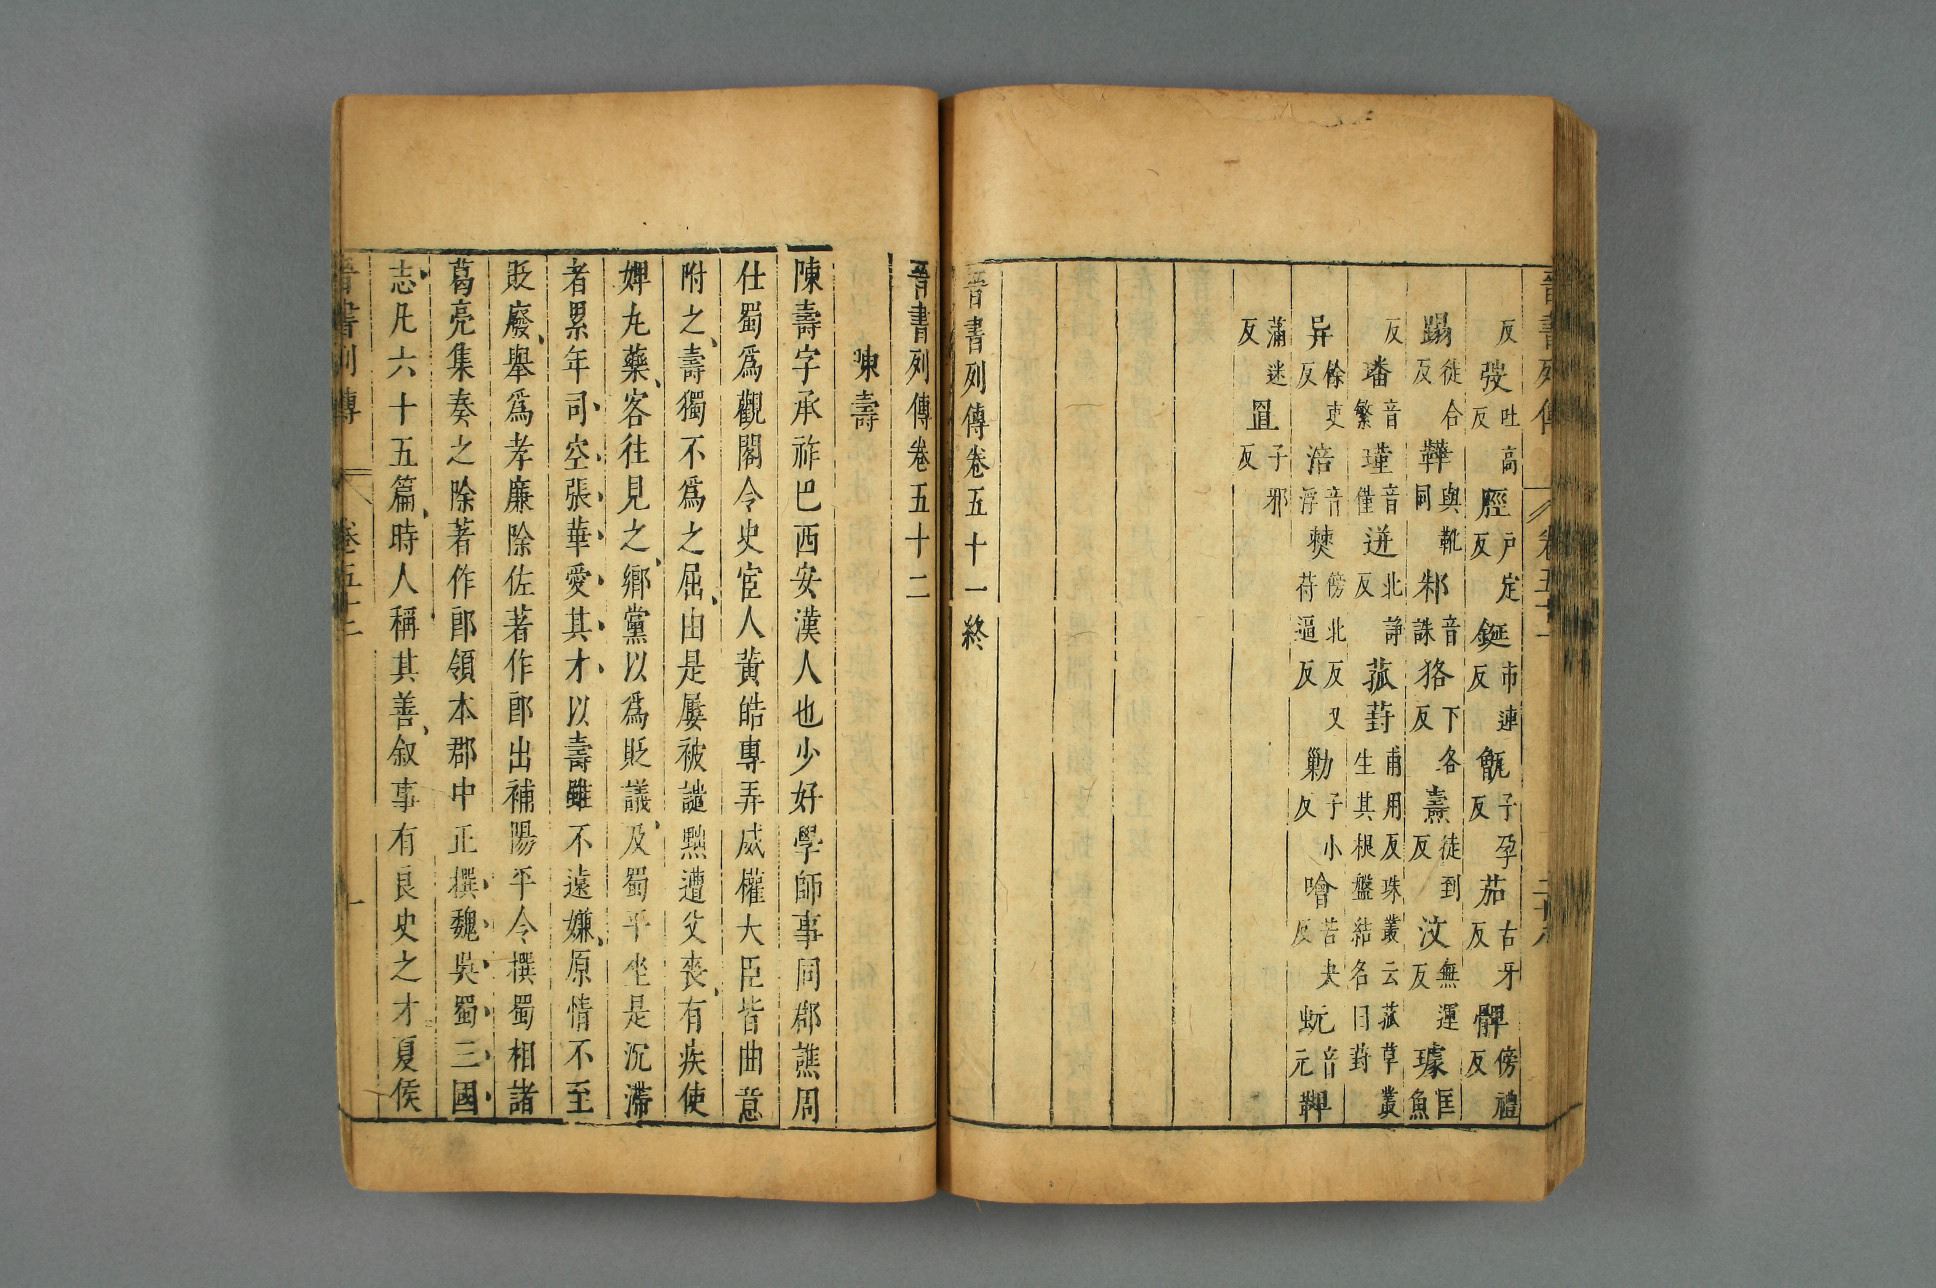 反 弢 吐高反 脛 戶定反 鋋 市連反 甑 子孕反 茄 古牙反 髀 傍禮反
踢 徒合反 鞾 與靴同 邾 音誅 狢 下各反 燾 徒到反 汶 無運反 璩 匡魚
反 璠 音繁 瑾 音僅 迸 北諍反 菰葑 甫用反珠叢云菰草叢生其根盤結名曰葑
异 餘吏反 涪 音浮 僰 傍北反又苻逼反 勦 子小反 噲 苦夬反 蚖 音元 鞞
蒲迷反 罝 子邪反
晉書列傳卷五十一終
晉書列傳卷五十二
陳壽
陳壽字承祚巴西安漢人也少好學師事同郡譙周
仕蜀爲觀閣令史宦人黃皓專弄威權大臣皆曲意
附之壽獨不爲之屈由是屢被譴黜遭父喪有疾使
婢丸藥客往見之鄉黨以爲貶議及蜀平坐是沉滯
者累年司空張華愛其才以壽雖不遠嫌原情不至
貶廢舉爲孝廉除佐著作郎出補陽平令撰蜀相諸
葛亮集奏之除著作郎領本郡中正撰魏吳蜀三國
志凡六十五篇時人稱其善叙事有良史之才夏侯
晉書列傳 卷五十二 一